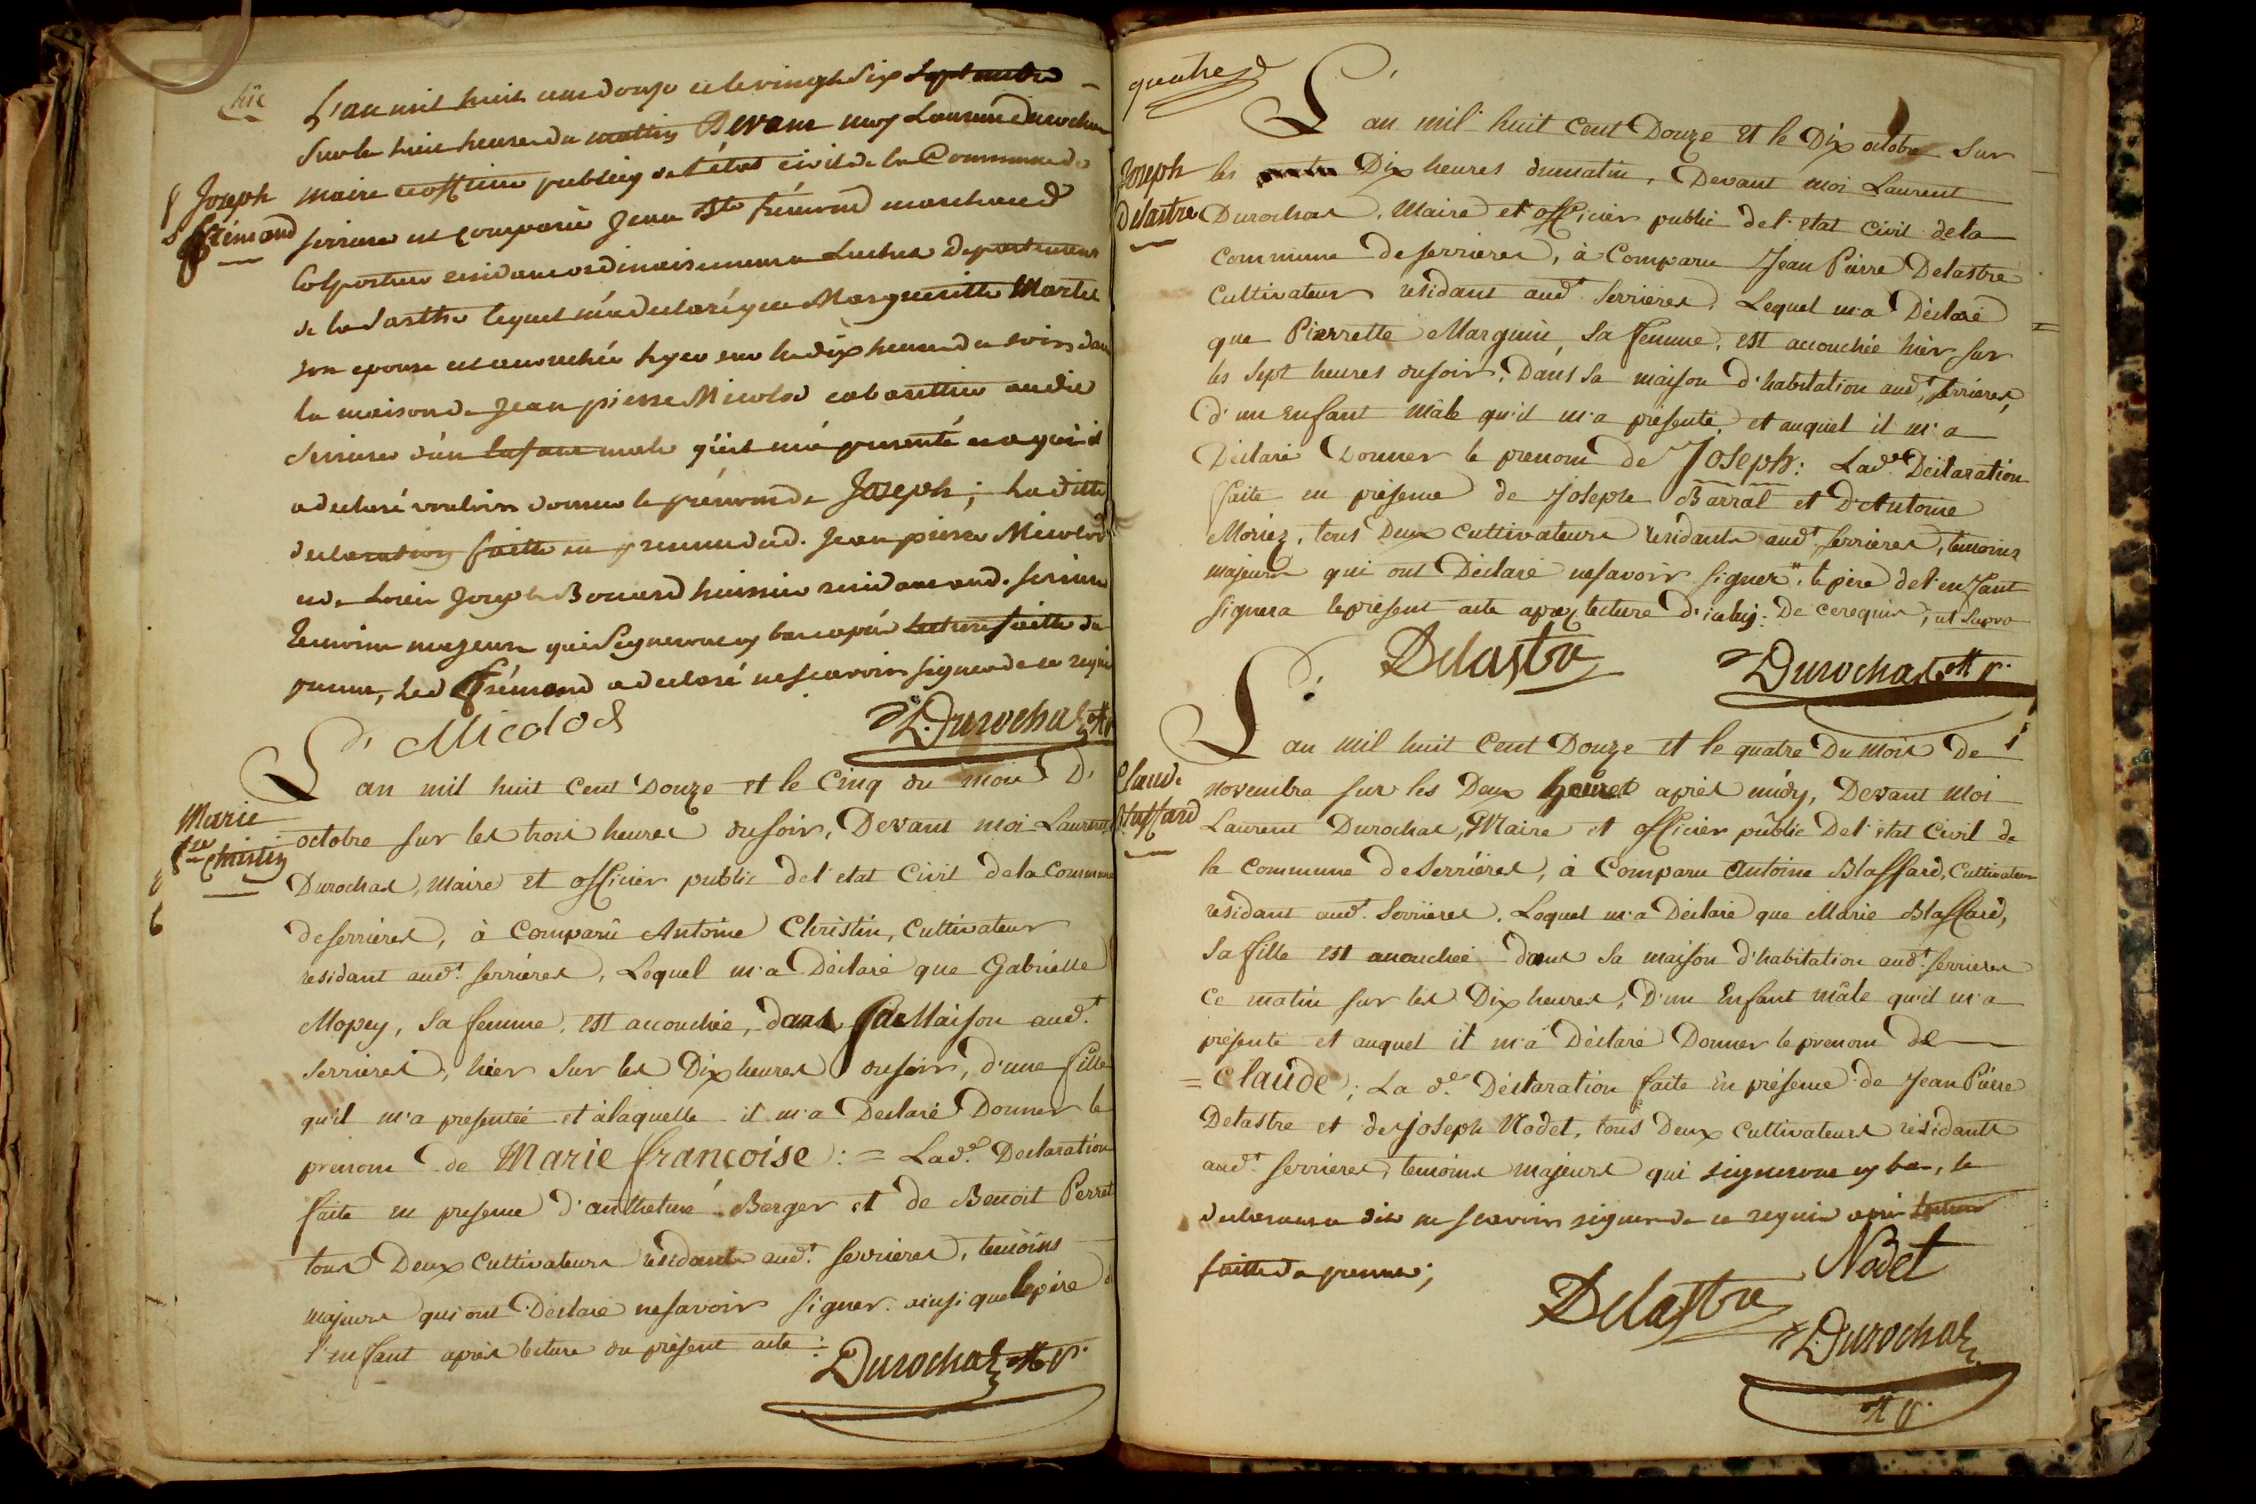 L'an mil huit cent douze et le vingt Six Septembre
Sur les huit heures du mattin Devant moy Laurent Durochat
Joseph
frémond
maire et officier publicq de l'état civil de la Commune de
serrieres est comparû Jean Bte frémond marchand
Colporteur residant ordinairement a Departement
de la Sarthe lequel m'a declaré que Margueritte Martel
son epouse est acouchée hyer sur les dix heures du soir dans
la maison de Jean pierre Micolod cabarettier audit
Serrieres d'un Enfant male qu'il m'a presenté et a qui il
a declaré vouloir donner le prénom de Joseph; La ditte
declaration faitte en presence dud. Jean pierre Micolod
et de Joseph Bouvard huissier residant aud. serriere
temoins majeurs qui Signeront cy bas après lecture faitte du
present, Led frémond a declaré ne scavoir signer de ce requis
Micolod
Durochat Mr
L'an mil huit Cent Douze et le Cinq du mois D'
Marie
fse Christin
octobre sur les trois heures du soir, Devant moi Laurent
Durochat, Maire et officier public de l'etat Civil de la Commune
de serrieres, à Comparû Antoine Christin, Cultivateur
residant audt. serrieres, Lequel m'a Déclaré que Gabrielle
Mopey, sa femme, est accouchée, dans sa Maison audt.
6
Serrieres, hier sur les Dix heures du soir, d'une fille
qu'il m'a presentée et à laquelle il m'a Declaré Donner le
prenom de Marie françoise: = Lade. Declaration
faite en presence d'anthelme Berger et de Benoit Perret
tous Deux Cultivateurs résidants audt. serrieres, temoins
majeurs qui ont Déclaré ne savoir signer ainsi que le pére d
l'enfant après lecture du présent acte:
Durochat Mr
quatre
L'an mil huit Cent Douze et le Dix octobre Sur
Joseph
Delastre
les Dix heures du matin, Devant moi Laurent
Durochat, Maire et officier public de l'etat Civil de la
Commune de serrieres, à Comparu Jean Pierre Delastre
Cultivateur résidant audt. Serrieres, Lequel m'a Déclaré
que Pierrette Marguin, sa femme, est accouchée hier sur
les Sept heures du soir, Dans sa maison d'habitation audt. serrieres,
d'un Enfant Mâle qu'il m'a présenté, et auquel il m'a
Déclaré Donner le prenom de Joseph: Lade. Déclaration
faite en présence de Joseph Barral et D'Antoine
Moriez, tous Deux Cultivateurs résidants audt. serrieres, temoins
majeurs qui ont Déclaré ne savoir signer, le pére de l'enfant
signera le présent acte après lecture d'icelui: De ce requis, ut supra
Delastre
Durochat Mr
L'an mil huit Cent Douze et le quatre Du Mois de
Claude
Blaffard
novembre sur les Deux heures après midy, Devant moi
Laurent Durochat, Maire et officier public De l'état Civil de
la Commune de Serrieres, à Comparu Antoine Blaffard, Cultivateur
résidant audt. Serrieres. Lequel m'a Déclaré que Marie Blaffard,
sa fille est accouchée dans sa maison d'habitation audt. serrieres
Ce matin sur les Dix heures, D'un Enfant mâle qu'il m'a
présenté et auquel il m'a Déclaré Donner le prenom de
= Claude; La de. Déclaration faite en présence de Jean Pierre
Delastre et de Joseph Nodet, tous Deux Cultivateurs résidants
audt. serrieres, temoins majeurs qui signeront cy bas, le
declarant a dit ne scavoir signer de ce requis lecture
faitte du present;
Nodet
Delastre
Durochat
Mr